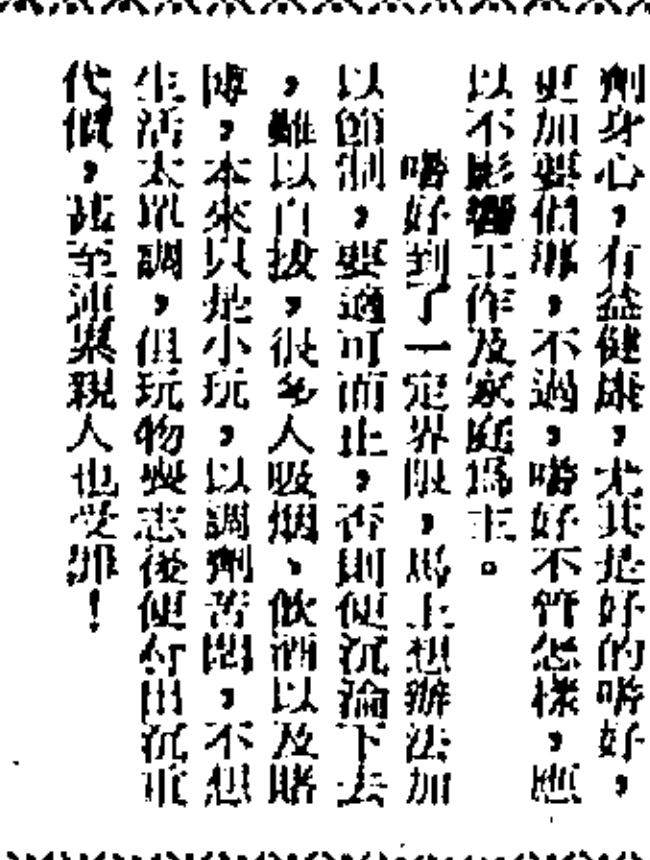 劑身心，有益健康，尤其是好的嗜好，
更加要倡導，不過，嗜好不管怎樣，應
以不影響工作及家庭爲主。
嗜好到了一定界限，馬上想辦法加
以節制，要適可而止，否則便沉淪下去
，難以自拔，很多人吸烟、飲酒以及賭
博，本來只是小玩，以調劑苦悶，不想
生活太單調，但玩物喪志後便付出沉重
代價，甚至連累親人也受罪！